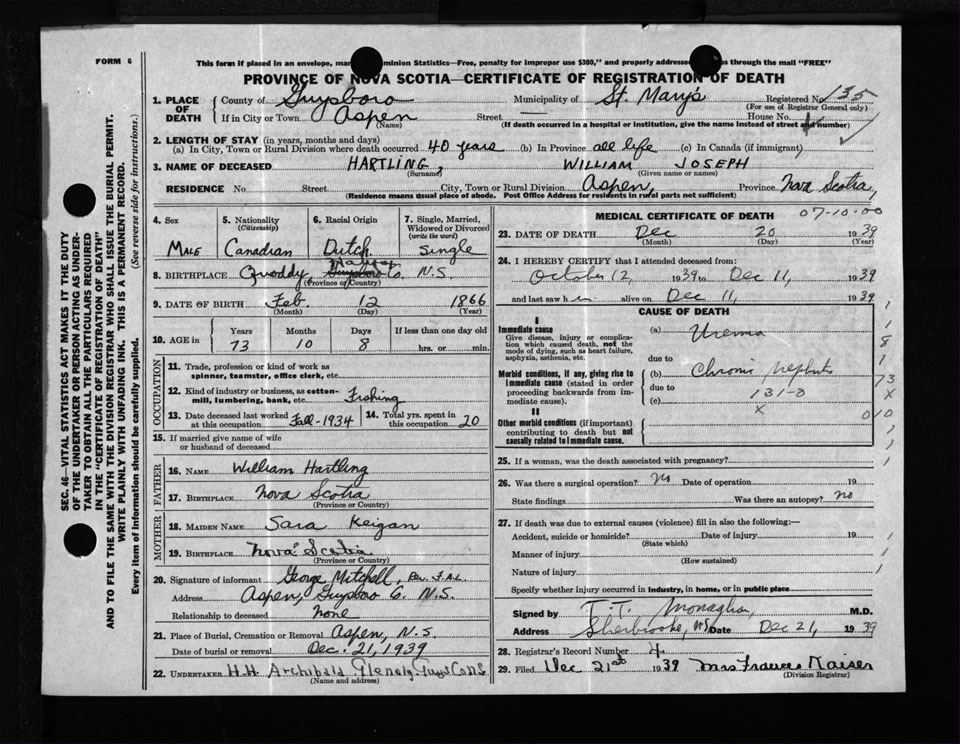 FORM 6
This form if placed in an envelope, mar minion Statistics—Free, penalty for improper use $300," and properly addres s through the mail "FREE"
PROVINCE OF NOVA SCOTIA—CERTIFICATE OF REGISTRATION OF DEATH
1. PLACE OF DEATH { County of Guysboro Municipality of St. Mary's Registered No. 135
(For use of Registrar General only)
If in City or Town Aspen Street — House No.
(Name) (If death occurred in a hospital or institution, give the name instead of street and number)
2. LENGTH OF STAY (in years, months and days)
(a) In City, Town or Rural Division where death occurred 40 years (b) In Province all life (c) In Canada (if immigrant)
3. NAME OF DECEASED HARTLING, WILLIAM JOSEPH
(Surname) (Given name or names)
RESIDENCE No. Street City, Town or Rural Division Aspen, Province Nova Scotia,
(Residence means usual place of abode. Post Office Address for residents in rural parts not sufficient)
4. Sex Male
5. Nationality (Citizenship) Canadian
6. Racial Origin Dutch
7. Single, Married, Widowed or Divorced (write the word) Single
8. BIRTHPLACE Quoddy, Halifax Guysboro Co. N.S.
(Province or Country)
9. DATE OF BIRTH Feb. 12 1866
(Month) (Day) (Year)
10. AGE in Years 73 Months 10 Days 8 If less than one day old hrs. or min.
OCCUPATION
11. Trade, profession or kind of work as spinner, teamster, office clerk, etc.
12. Kind of industry or business, as cotton-mill, lumbering, bank, etc. Fishing
13. Date deceased last worked at this occupation Fall-1934 14. Total yrs. spent in this occupation 20
15. If married give name of wife or husband of deceased
FATHER
16. NAME William Hartling
17. BIRTHPLACE Nova Scotia
MOTHER
18. MAIDEN NAME Sara Keigan
19. BIRTHPLACE Nova Scotia
(Province or Country)
20. Signature of informant George Mitchell, Per F.A.L.
Address Aspen, Guysboro C. N.S.
Relationship to deceased none
21. Place of Burial, Cremation or Removal Aspen, N.S.
Date of burial or removal Dec. 21, 1939
22. UNDERTAKER H.H. Archibald Glenelg Guys Co N S
(Name and address)
MEDICAL CERTIFICATE OF DEATH 07-10-00
23. DATE OF DEATH Dec 20 1939
(Month) (Day) (Year)
24. I HEREBY CERTIFY that I attended deceased from:
October 12, 1939 to Dec 11, 1939
and last saw h im alive on Dec 11, 1939
CAUSE OF DEATH
I
Immediate cause (a) Uremia
Give disease, injury or complication which caused death, not the mode of dying, such as heart failure, asphyxia, asthenia, etc.
due to
Morbid conditions, if any, giving rise to immediate cause (stated in order proceeding backwards from immediate cause).
(b) Chronic Nephritis
due to 131-0
(c) x
II
Other morbid conditions (if important) contributing to death but not causally related to immediate cause.
1
1
8
1
73
X
010
25. If a woman, was the death associated with pregnancy?
26. Was there a surgical operation? No Date of operation 19
State findings Was there an autopsy? no
27. If death was due to external causes (violence) fill in also the following:—
Accident, suicide or homicide? Date of injury 19
(State which)
Manner of injury
(How sustained)
Nature of injury
Specify whether injury occurred in industry, in home, or in public place
Signed by T. T. Monaghan M.D.
Address Sherbrooke, N.S. Date Dec 21, 1939
28. Registrar's Record Number 4.
29. Filed Dec 21st 1939 Mrs Frances Kaiser
(Division Registrar)
SEC. 46—VITAL STATISTICS ACT MAKES IT THE DUTY
OF THE UNDERTAKER OR PERSON ACTING AS UNDER-
TAKER TO OBTAIN ALL THE PARTICULARS REQUIRED
IN THE "CERTIFICATE OF REGISTRATION OF DEATH"
AND TO FILE THE SAME WITH THE DIVISION REGISTRAR WHO SHALL ISSUE THE BURIAL PERMIT.
WRITE PLAINLY WITH UNFADING INK. THIS IS A PERMANENT RECORD.
Every item of information should be carefully supplied. (See reverse side for instructions.)